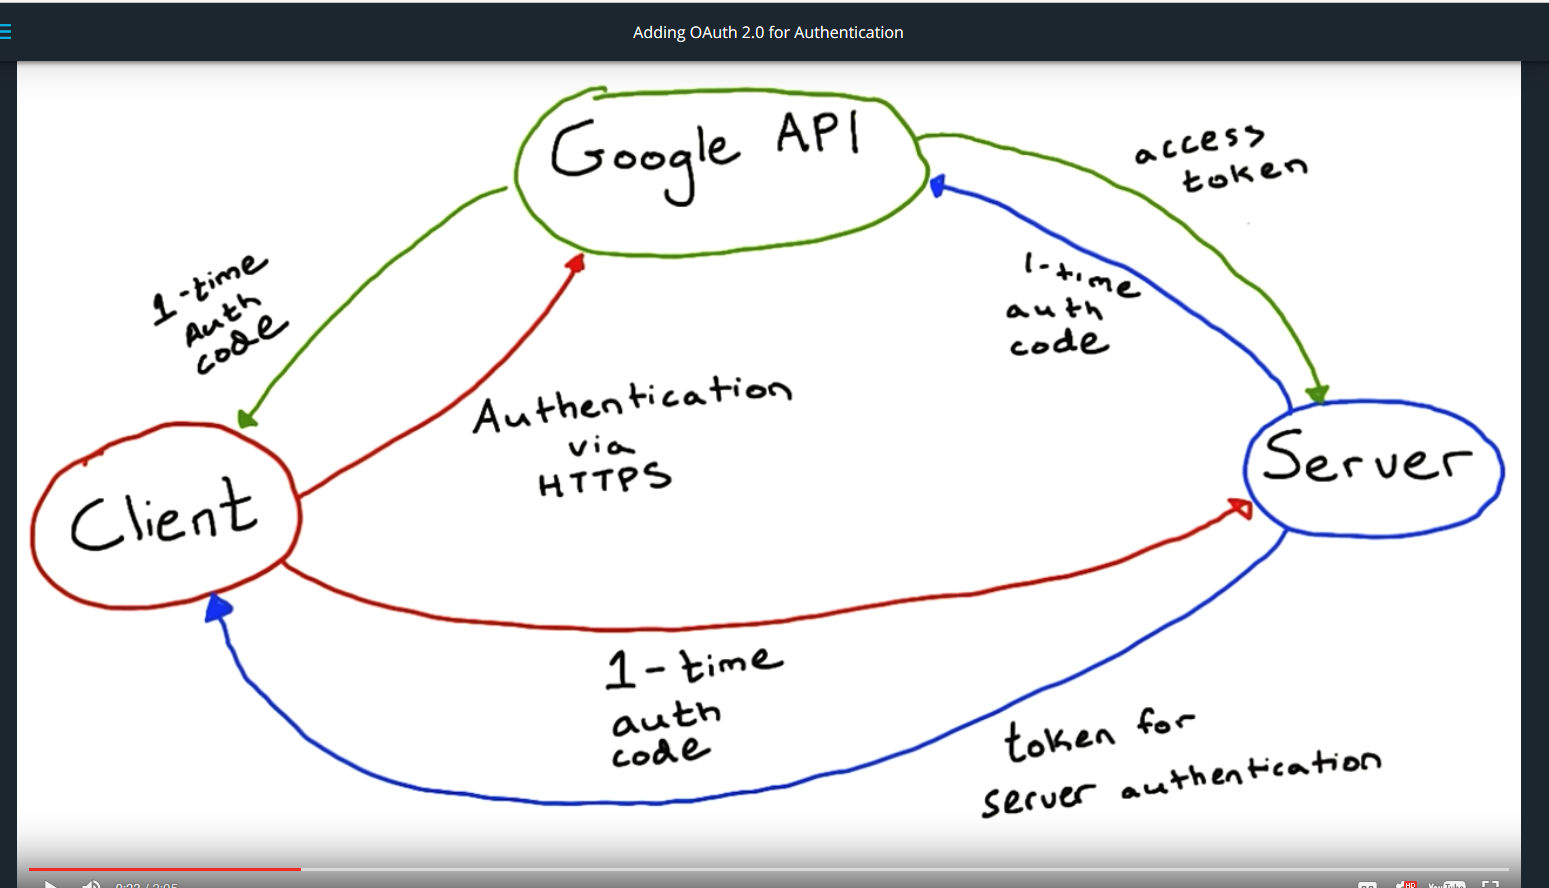 Adding OAuth 2.0 for Authentication
Google API
access
token
1-time
Auth
code
1-time
auth
code
Authentication
via
HTTPS
Client
Server
1-time
auth
code
token for
server authentication